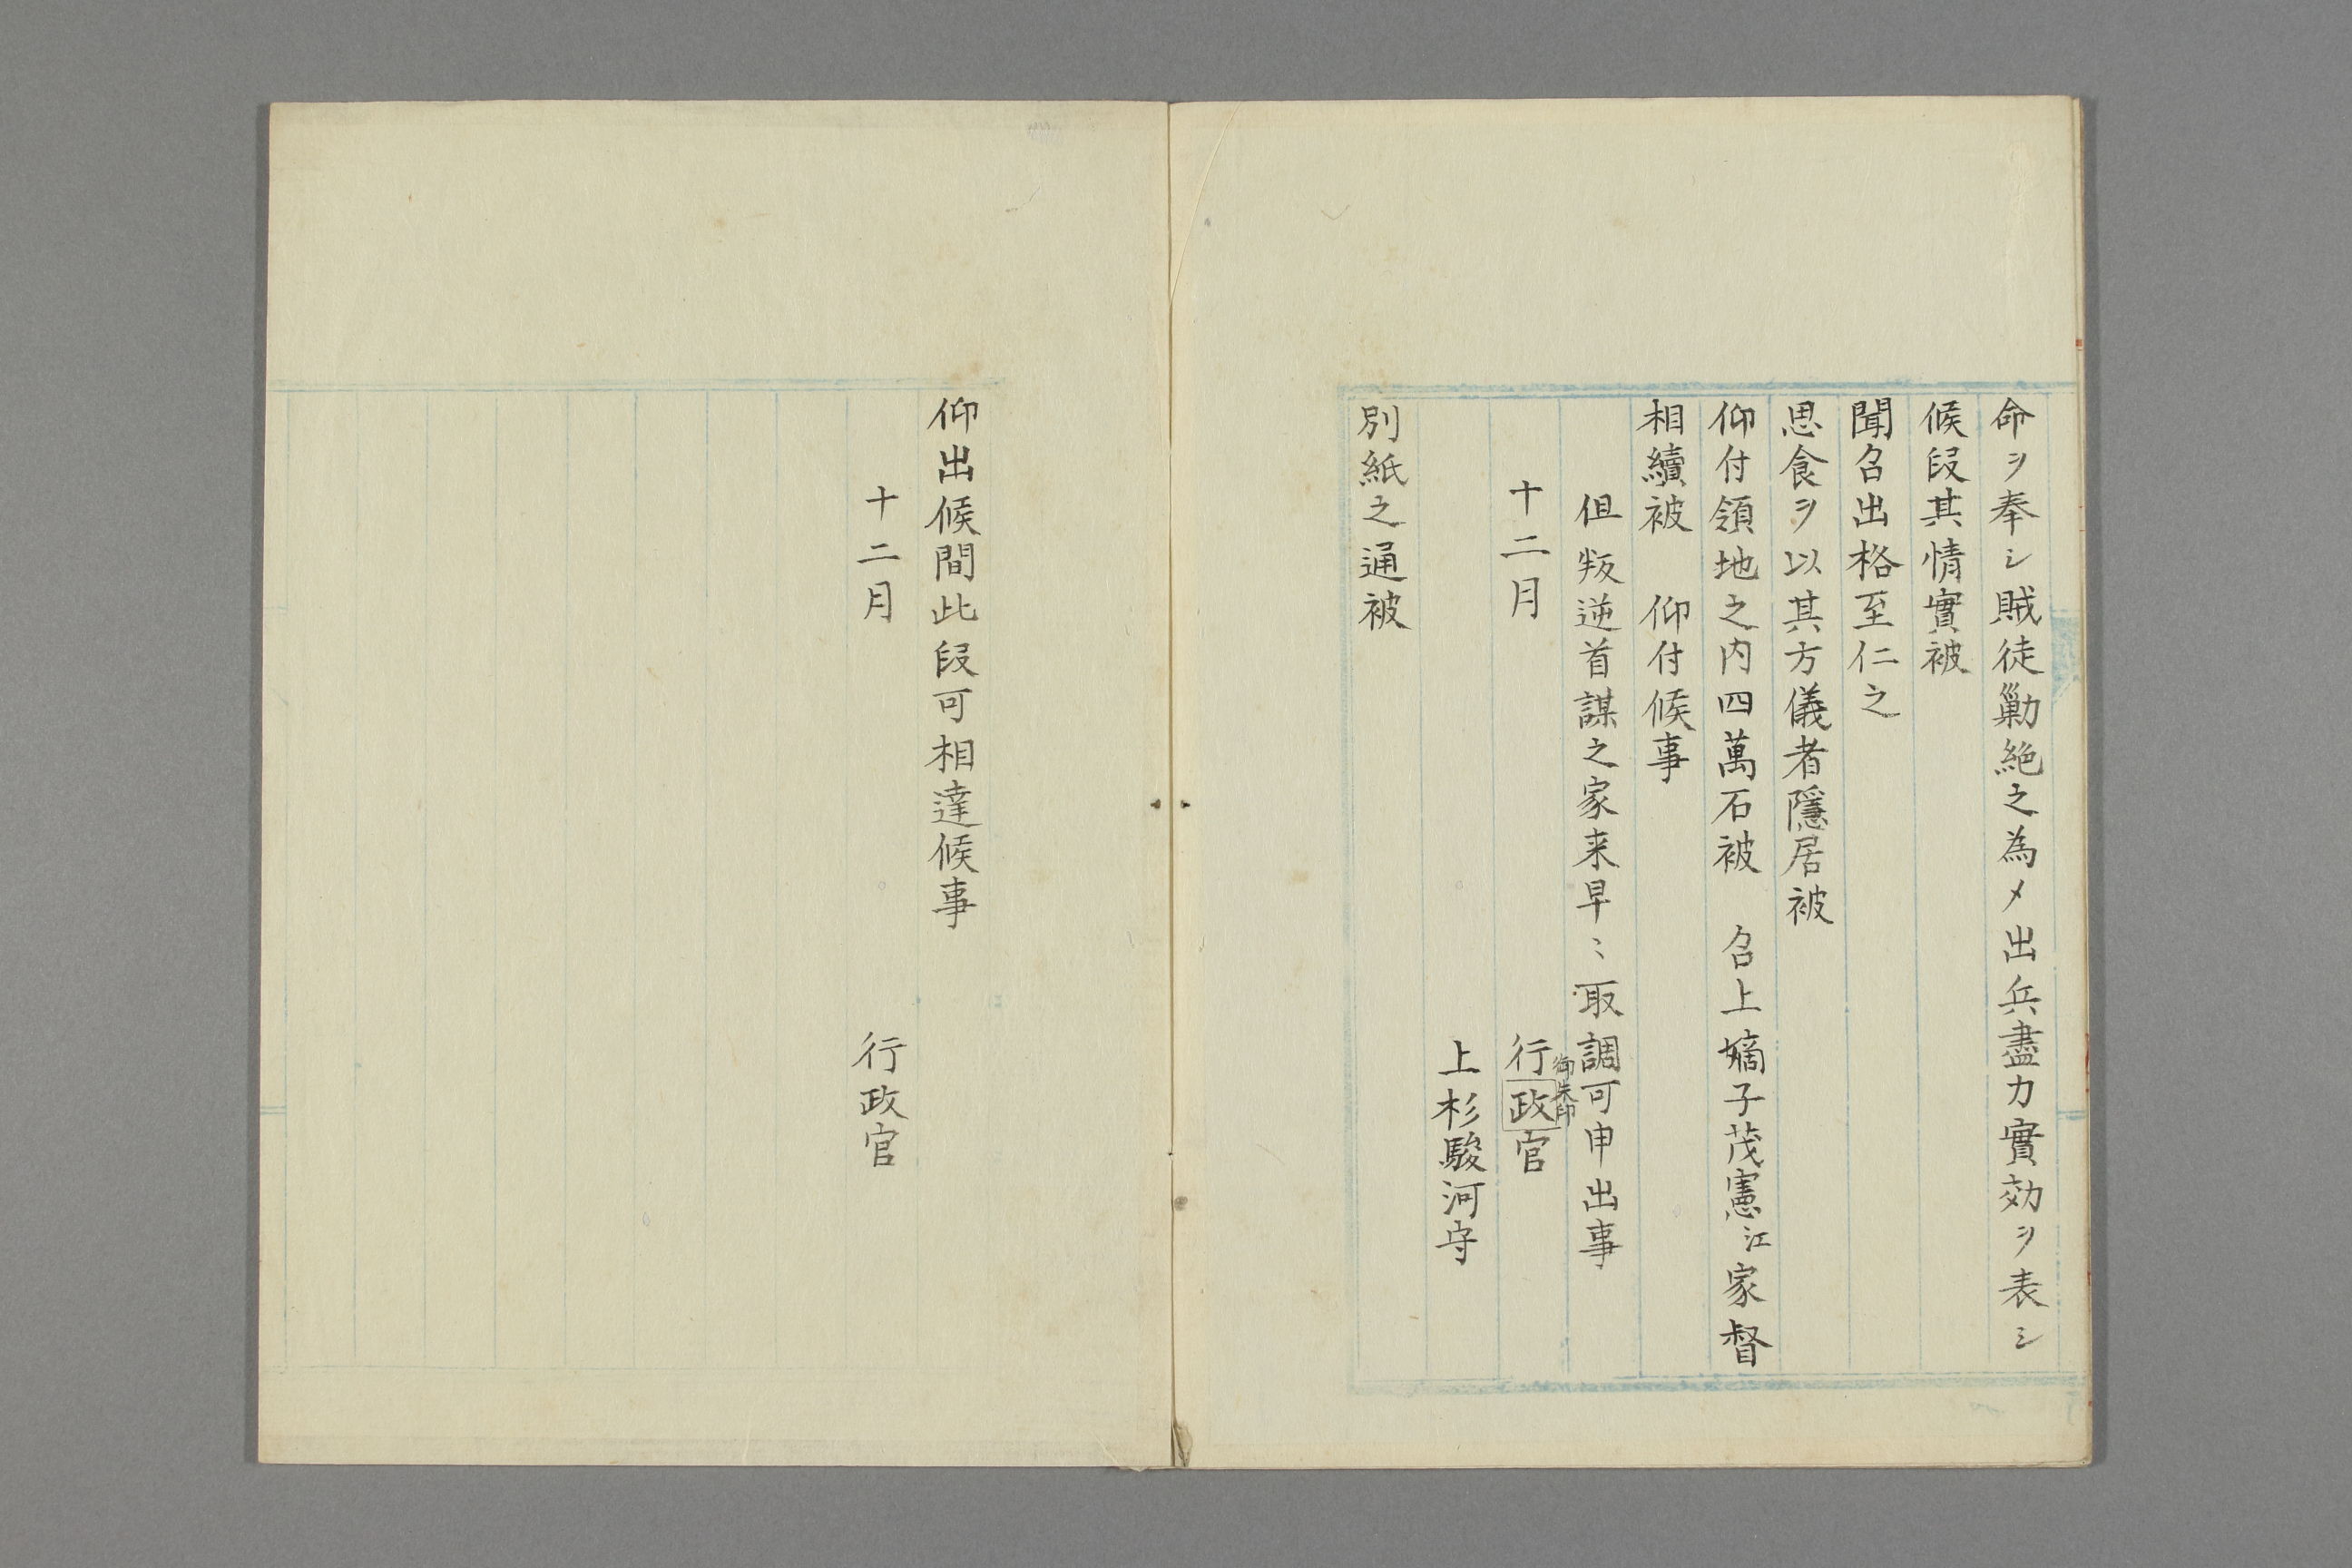 命ヲ奉シ賊徒勦絶之為メ出兵盡力實効ヲ表シ
候段其情實被
聞召出格至仁之
思食ヲ以其方儀者隱居被
仰付領地之内四萬石被　召上嫡子茂憲江家督
相續被　仰付候事
但叛逆首謀之家来早〻取調可申出事
御朱印
十二月　行政官
上杉駿河守
別紙之通被
仰出候間此段可相達候事
十二月　行政官